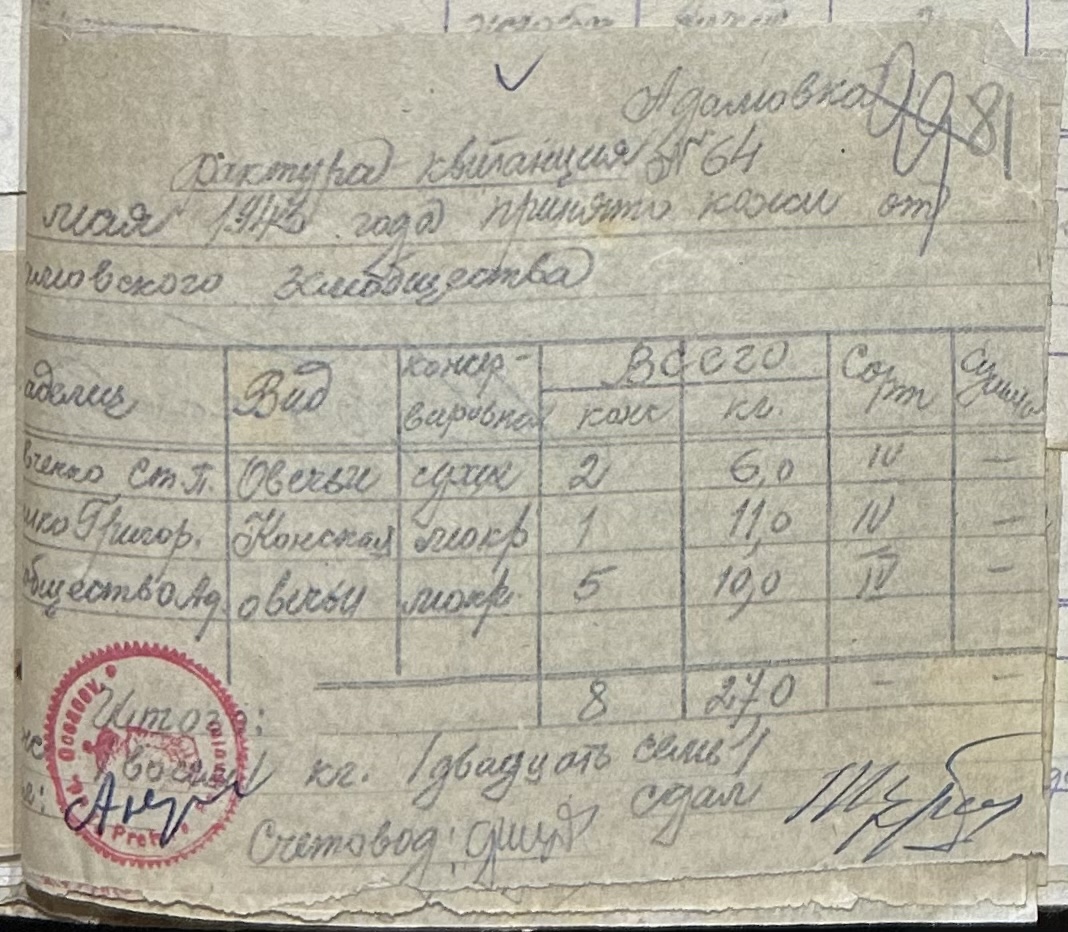 Адамовка
81
Фактура квитанция № 64
мая 1943 года принято кожи от
мовского земобщества
аделец Вид консер- ВСЕГО Сорт Сумма
вировка кож кг.
вченко Ст. П. Овечьи сухих 2 6,0 IV —
нко Григор. Конская мокр 1 11,0 IV —
общество Ад. овечьи мокр. 5 10,0 IV —
Итого: 8 27,0 - —
/восемь/ кг. /двадцать семь/
сдал
Счетовод: